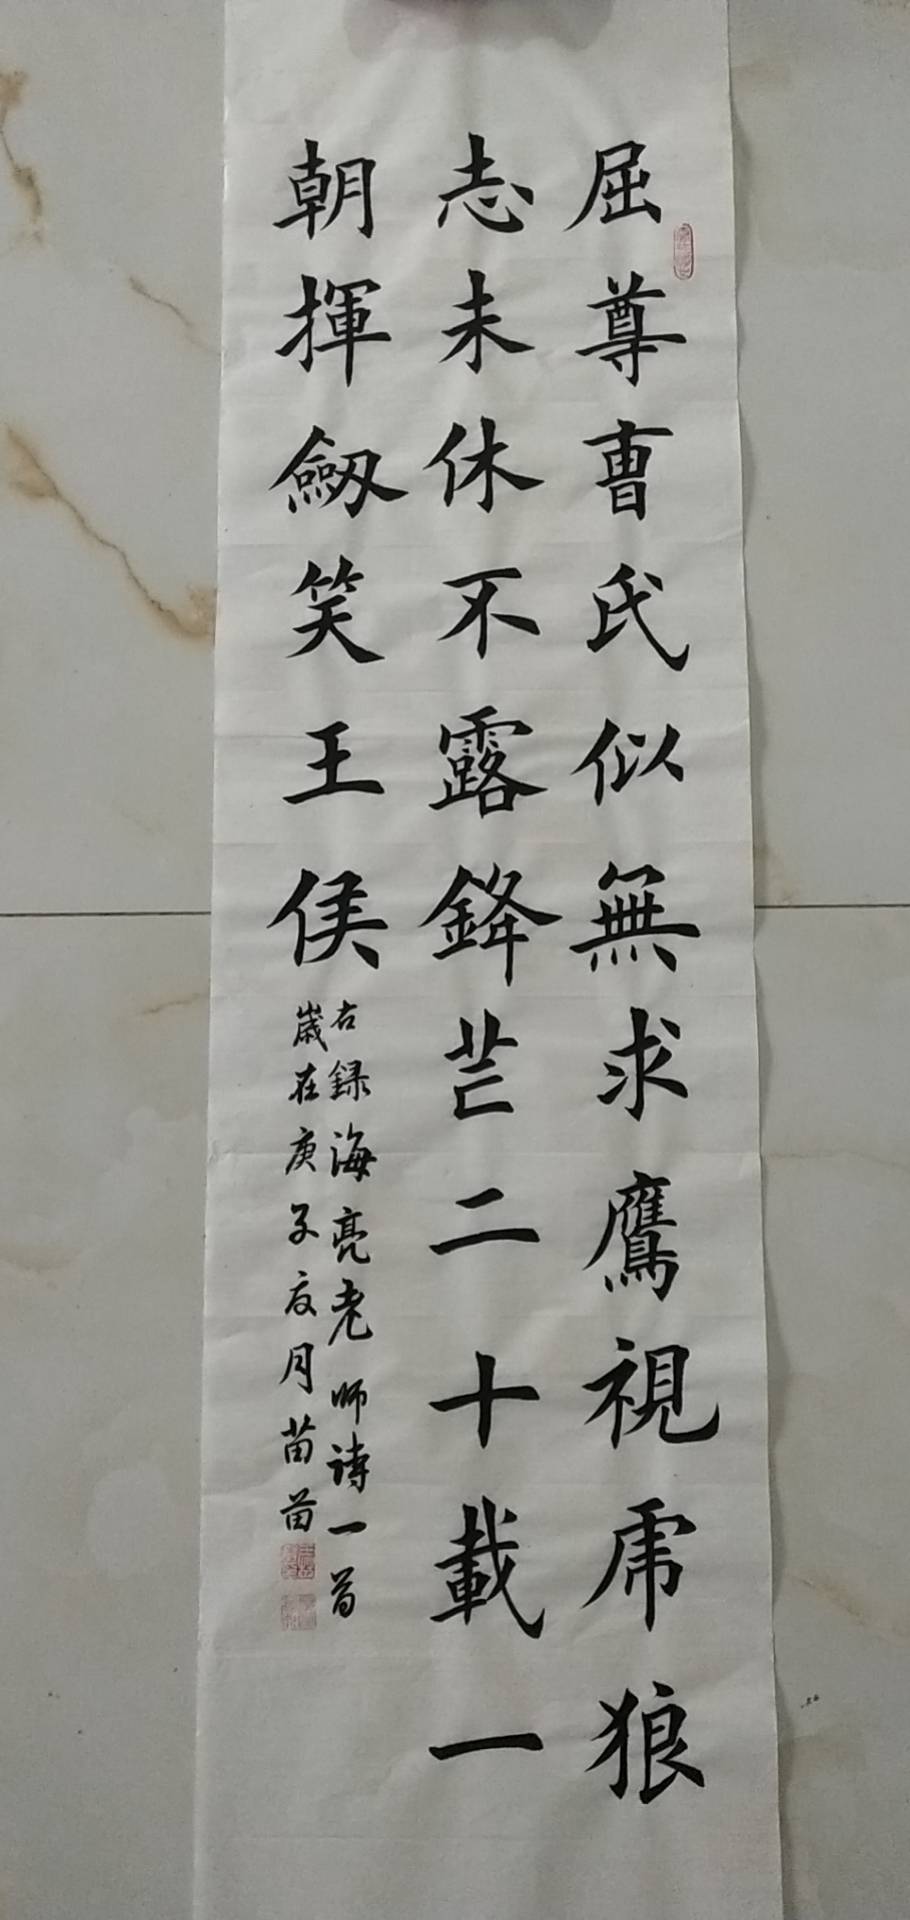 屈尊曹氏似無求鷹視虎狼
志未休不露鋒芒二十載一
朝揮劔笑王侯
右録海亮老师诗一首
歲在庚子夏月苗苗